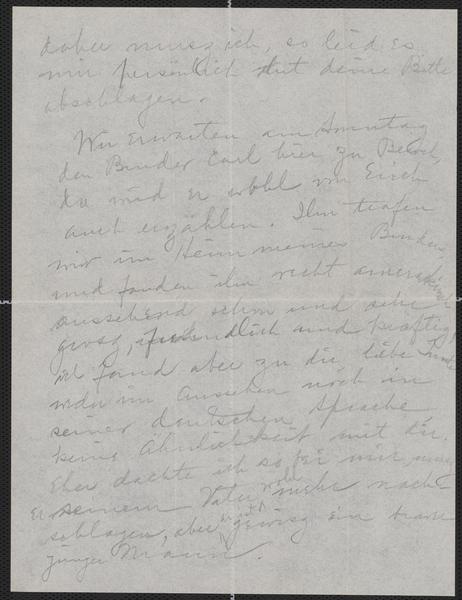 daher muss ich, so leid es
mir persönlich tut deine Bitte
abschlagen.
Wir erwarten am Sonntag
den Bruder Carl hier zu Besuch,
da wird er wohl von Euch
auch erzählen. Ihn trafen
wir im Heim meines Bruders,
und fanden ihn recht amerikanisch
aussehend schon und sehr
gross, freundlich und kräftig,
ich fand aber zu dir liebe
weder im Aussehen noch in
seiner deutschen Sprache
keine Ähnlichkeit mit dir.
Eher dachte ich so für mir muss
Er seinem Vater wohl mehr nach-
schlagen, aber er ist gewiss ein
junger Mann.